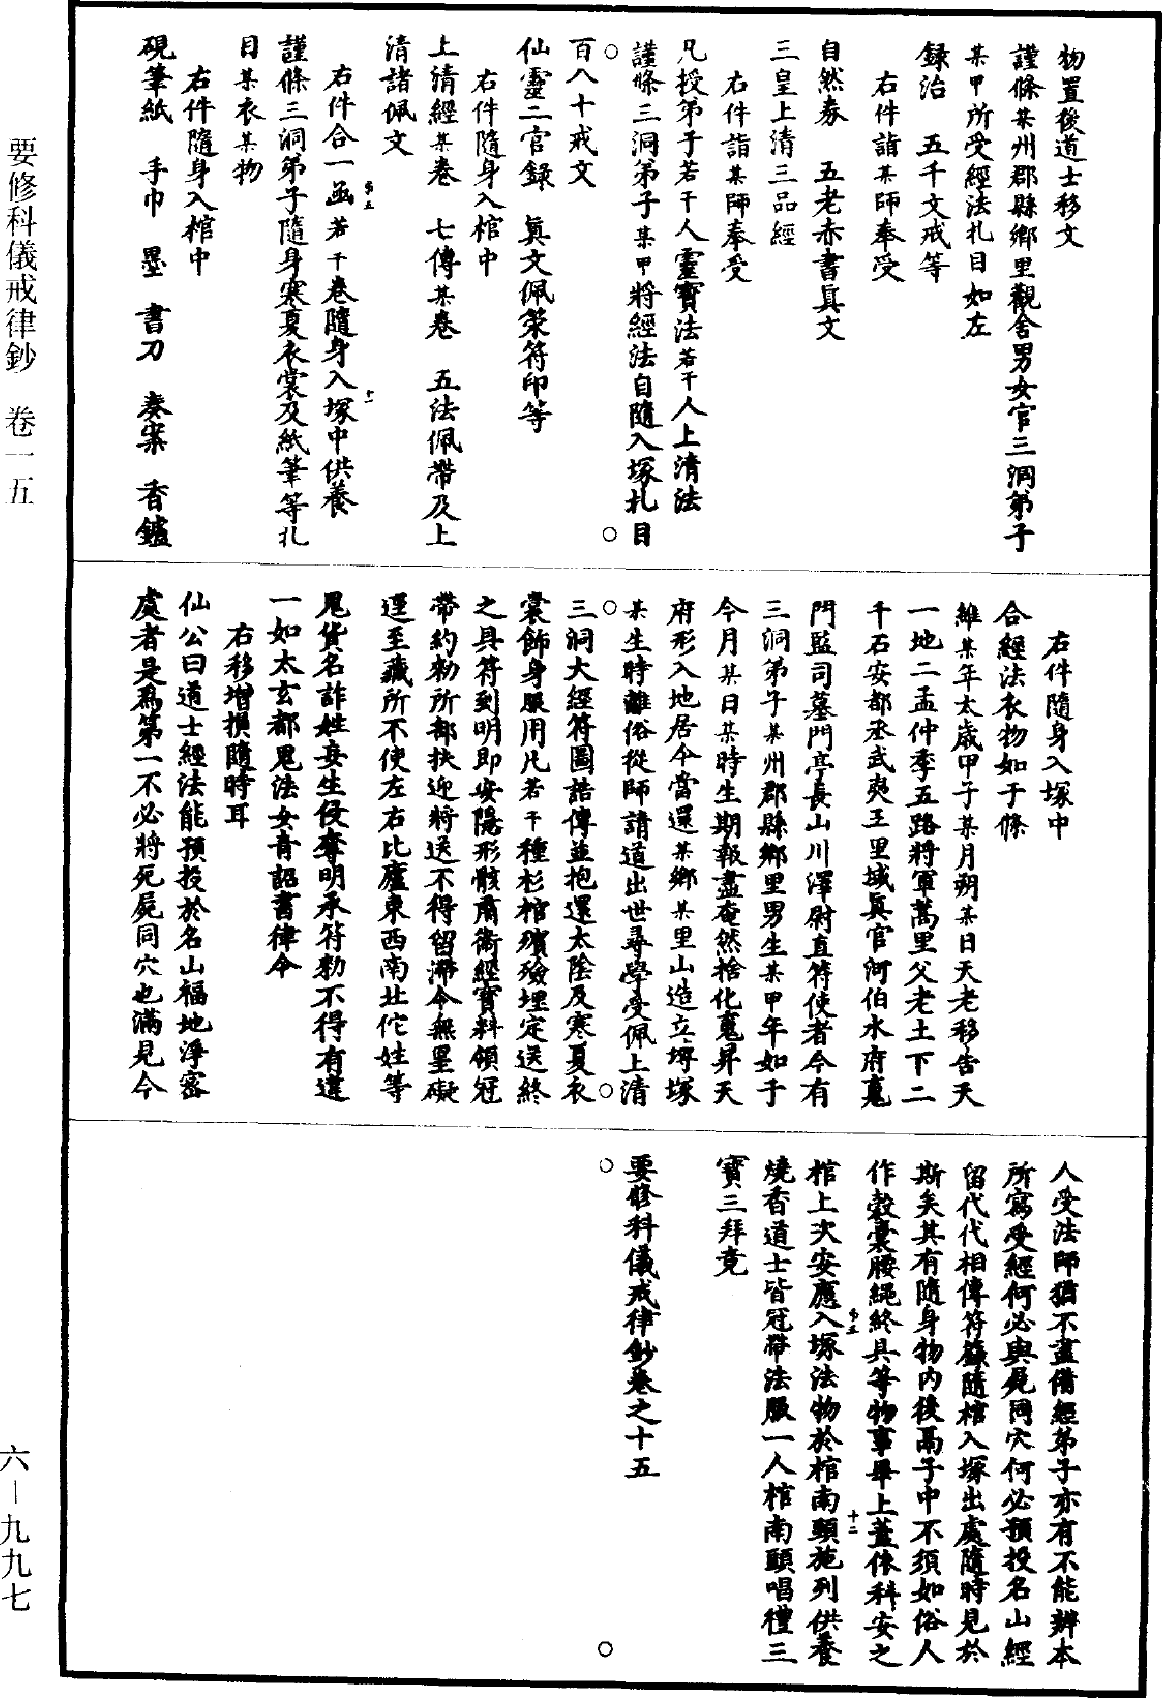 物置後道士移文
謹條某州郡縣鄉里觀舍男女官三洞弟子
某甲所受經法札目如左
錄治　五千文戒等
右件詣某師奉受
自然券　五老赤書真文
三皇上清三品經
右件詣某師奉受
凡授弟子若干人靈寶法若干人上清法
謹條三洞弟子某甲將經法自隨入塚札目
百八十戒文
仙靈二官錄　真文佩策符印等
右件隨身入棺中
上清經某卷　七傳某卷　五法佩帶及上
清諸佩文
右件合一函若干卷隨身入塚中供養
謹條三洞弟子隨身寒夏衣裳及紙筆等札
目某衣某物
右件隨身入棺中
硯筆紙　手巾　墨　書刀　奏案　香鑪
右件隨身入塚中
合經法衣物如于條
維某年太歲甲子某月朔某日天老移告天
一地二孟仲季五路將軍蒿里父老土下二
千石安都丞武夷王里域真官河伯水府䰟
門監司墓門亭長山川澤尉直符使者今有
三洞弟子某州郡縣鄉里男生某甲年如于
今月某日某時生期報盡奄然捨化䰟昇天
府形入地居今當還某鄉某里山造立塼塚
某生時離俗從師請道出世尋學受佩上清
三洞大經符圖誥傳並抱還太陰及寒夏衣
裳飾身服用凡若干種杉棺殯殮埋定送終
之具符到明即安隱形骸肅衛經寶料領冠
帶約勑所部扶迎將送不得留滯令無罣礙
逕至藏所不使左右比廬東西南北佗姓等
鬼貨名詐姓妄生侵奪明承符勑不得有違
一如太玄都鬼法女青詔書律令
右移增損隨時耳
仙公曰道士經法能預投於名山福地淨密
處者是為第一不必將死屍同穴也滿見今
人受法師猶不盡備經弟子亦有不能辨本
所寫受經何必與屍同穴何必預投名山經
留代代相傳符籙隨棺入塚出處隨時見於
斯矣其有隨身物內後鬲子中不須如俗人
作穀囊腰繩終具等物事畢上蓋依科安之
棺上次安應入塚法物於棺南頭施列供養
燒香道士皆冠帶法服一人棺南頭唱禮三
寶三拜竟
要修科儀戒律鈔卷之十五
要修科儀戒律鈔　卷一五
六—九九七